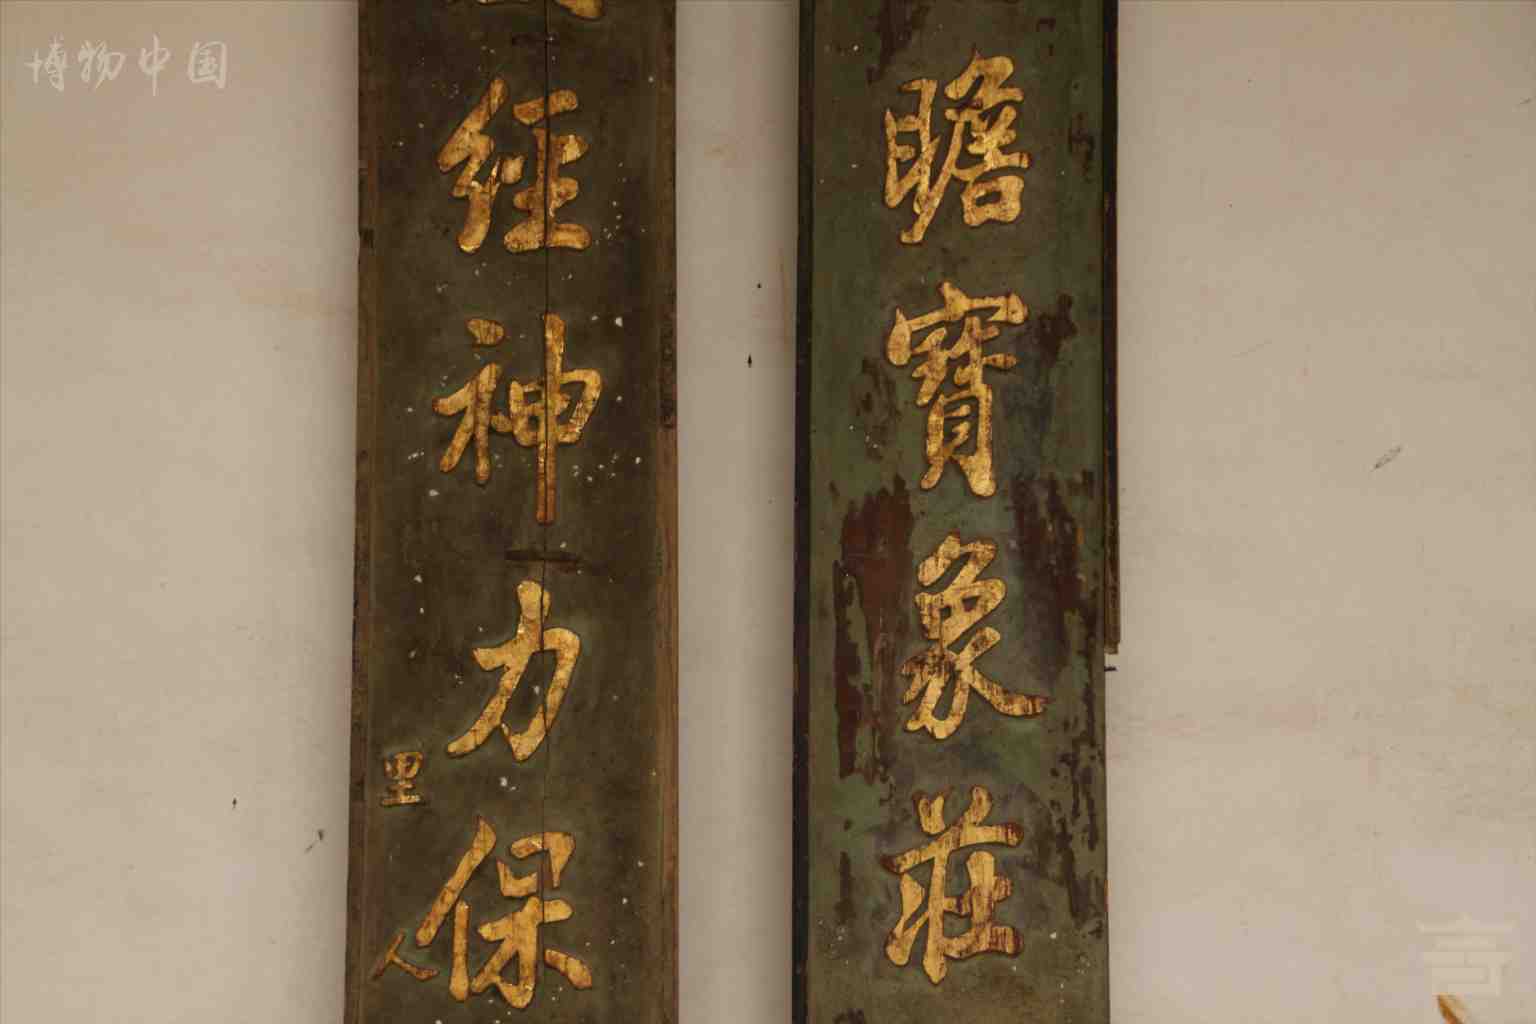 博物中国
瞻寶象莊
經神力保
里人